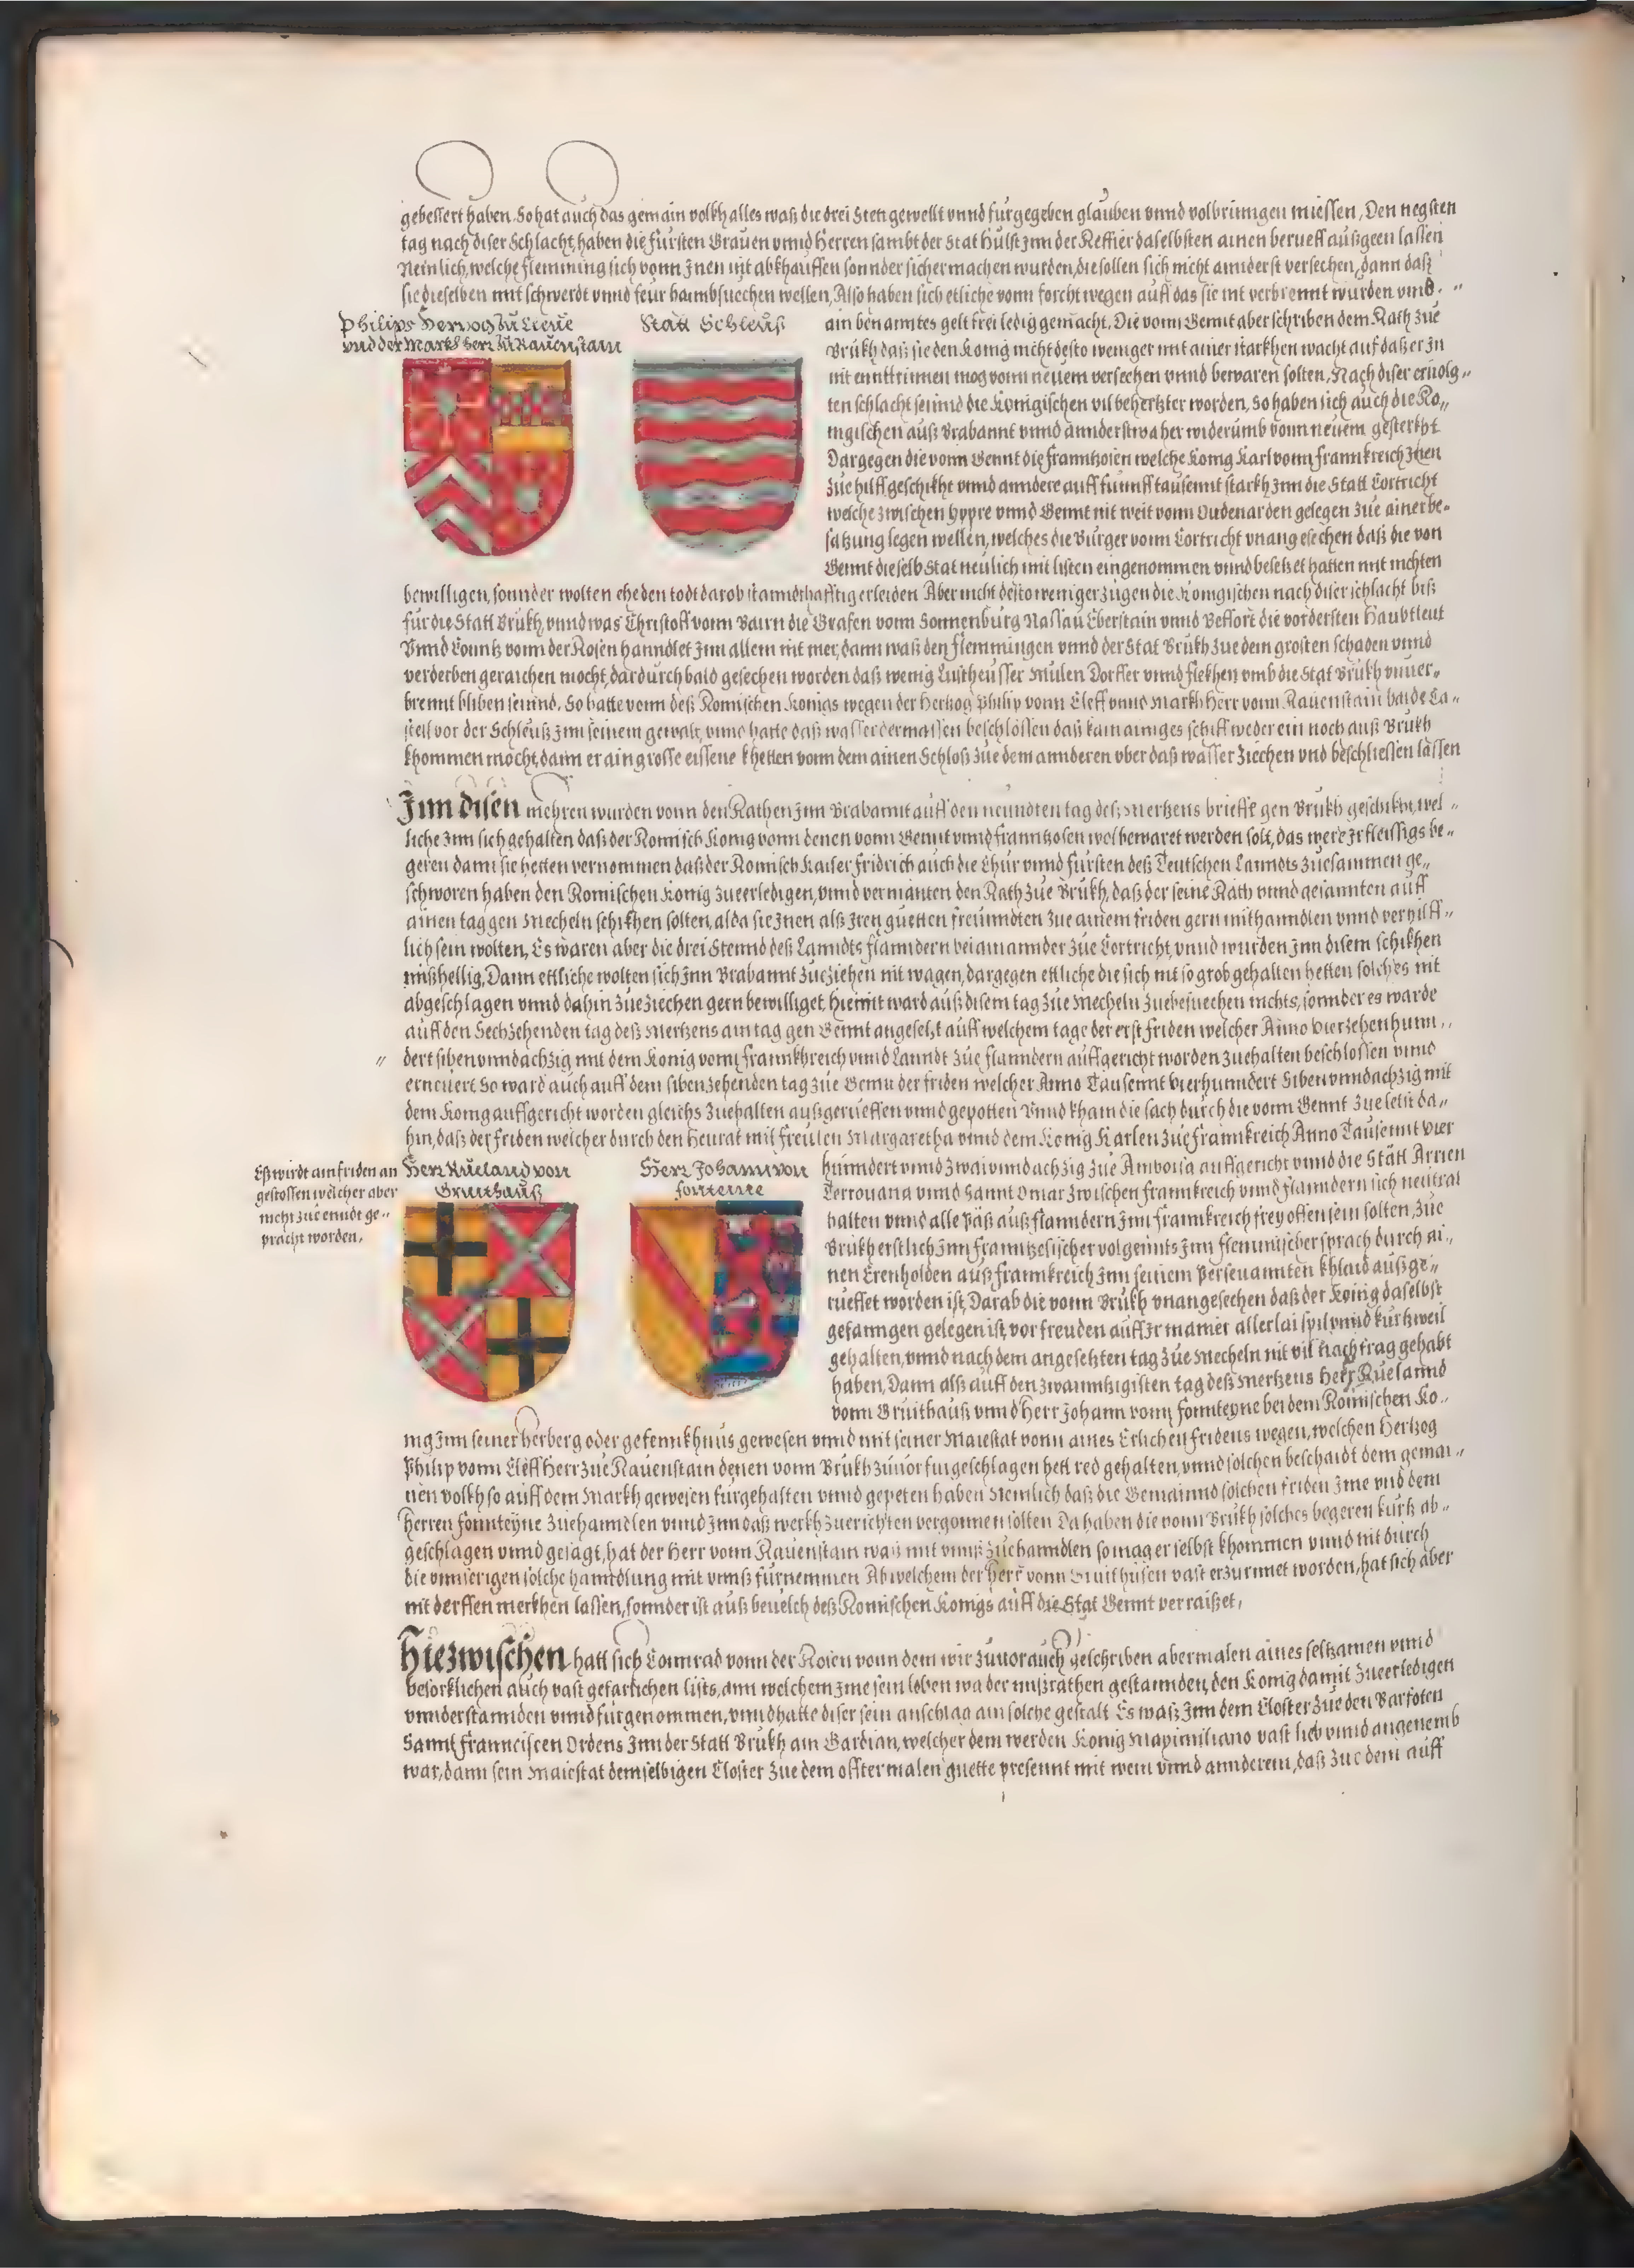 gebessert haben. So hat auch das gemain volkh alles waß die drei Sten gewellt vnnd furgegeben glauben vnnd volbrinngen miessen, Den negsten
tag nach diser Schlacht, haben die fürsten Grauen vnnd Herren sambt der Stat Hulst Jnn der Reffier daselbsten ainen berueff außgeen lassen
Nemlich, welche flemming sich vonn Jnen nit abkhauffen sonnder sicher machen wurden, die sollen sich nicht annderst versechen, dann daß
sie dieselben mit schwerdt vnnd feur haimbsuechen wellen, Also haben sich etliche vonn forcht wegen auff das sie nit verbrennt wurden vmb
Philips Hertzog zu Cleue
vnd der Markh Herr zu Rauenstain
Statt Schleuß
ain benanntes gelt frei ledig gemacht. Die vonn Gennt aber schriben dem Rath zue
Brukh daß sie den Konig nicht desto weniger mit ainer starkhen wacht auf daß er Jn
nit enntrinnen mog vonn neuem versechen vnnd bewaren solten, Nach diser eruolg„
ten schlacht seinnd die Konigischen vil behertzter worden, so haben sich auch die Ko„
nigischen auß Brabannt vnnd annderstwaher widerumb vonn neuem gesterkht
Dargegen die vonn Gennt die franntzosen welche Konig Karl vonn frannkreich Jnen
zue hilff geschikht vnnd andere auff funnff tausennt starkh Jnn die Statt Cortricht
welche zwischen Hypre vnnd Gennt nit weit vonn Oudenarden gelegen zue ainer be„
satzung legen wellen, welches die Burger vonn Cortricht vnangesechen daß die von
Gennt dieselb Stat neulich mit listen eingenommen vnnd besetzet hatten mit nichten
bewilligen, sonnder wolten ehe den todt darob stanndthafftig erleiden Aber nicht desto weniger zugen die Konigischen nach diser schlacht biß
für die Statt Brukh, vnnd was Christoff vonn Bairn die Grafen vonn Sonnenburg Nassau Eberstain vnnd Beffort die vordersten Haubtleut
Vnnd Counts vonn der Rosen hanndlet Jnn allem nit mer, dann waß den flemmingen vnnd der Stat Brukh zue dem grosten schaden vnnd
verderben geraichen mocht, dardurch bald gesechen worden daß wenig Lustheusser Mulen Dorffer vnnd flekhen vmb die Stat Brukh vnuer„
brennt bliben seinnd, So hatte vonn deß Romischen Konigs wegen der Hertzog Philip vonn Cleff vnnd Markh Herr vonn Rauenstain baide Ca„
stell vor der Schleuß Jnn seinem gewalt, vnnd hatte daß wasser dermassen beschlossen daß kain ainiges schiff weder ein noch auß Brukh
khommen mocht, dann er ain grosse eissene khetten vonn dem ainen Schloß zue dem annderen vber daß wasser ziechen vnd beschliessen lassen
Jnn disen mehren wurden vonn den Rathen Jnn Brabannt auff den neundten tag deß Mertzens brieffe gen Brukh geschikht, wel„
liche Jnn sich gehalten daß der Romisch Konig vonn denen vonn Gennt vnnd franntzosen wol bewaret werden solt, das were Jr fleissigs be„
geren dann sie hetten vernommen daß der Romisch Kaiser Fridrich auch die Chur vnnd fursten deß Teutschen Lanndts zuesammen ge„
schworen haben den Romischen Konig zueerledigen, vnnd vermanten den Rath zue Brukh, daß der seine Räth vnnd gesannten auff
ainen tag gen Mecheln schikhen solten, alda sie Jnen alß Jren guetten freunndten zue ainem friden gern mithanndlen vnnd verhilff„
lich sein wolten, Es waren aber die drei Stennd deß Lanndts flanndern bei ainannder zue Cortricht, vnnd wurden Jnn disem schikhen
mißhellig, Dann ettliche wolten sich Jnn Brabannt zueziehen nit wagen, dargegen ettliche die sich nit so grob gehalten hetten solches nit
abgeschlagen vnnd dahin zueziechen gern bewilliget, hiemit ward auß disem tag zue Mecheln zuebesuechen nichts, sonnder es warde
auff den Sechzehenden tag deß Mertzens ain tag gen Gennt angesetzt auff welchem tage der erst friden welcher Anno vierzehenhunn„
„ dert siben vnndachzig mit dem Konig vonn frannkhreich vnnd Lanndt zue flanndern auffgericht worden zuehalten beschlossen vnnd
erneuert So ward auch auff dem sibenzehenden tag zue Gennt der friden welcher Anno Tausennt vierhunndert Siben vnndachzig mit
dem Konig auffgericht worden gleichs zuehalten außgerueffen vnnd gepotten Vnnd kham die sach durch die vonn Gennt zueletst da„
hin, daß der friden welcher durch den Heurat mit freulen Margaretha vnnd dem Konig Karlen zue frannkreich Anno Tausennt vier
Eß wirdt ain friden an
gestossen welcher aber
nicht zue ennde ge„
pracht worden.
Herr Rueland von
Gruithauß
Herr Johann von
fonteine
hunndert vnnd zwai vnndachzig zue Ambosia auffgericht vnnd die Stätt Arrien
Terrouana vnnd Sannt Omar zwischen frannkreich vnnd flanndern sich neutral
halten vnnd alle Päß auß flanndern Jnn frannkreich frey offen sein solten, zue
Brukh erstlich Jnn franntzesischer volgennts Jnn flemmischer sprach durch ai„
nen Erenholden auß frannkreich Jnn seinem Persenannten khlaid außge„
rueffet worden ist, Darab die vonn Brukh vnangesechen daß der Konig daselbst
gefanngen gelegen ist, vor freuden auff Jr manier allerlai spil vnnd kurtzweil
gehalten, vnnd nach dem angesetzten tag zue Mecheln nit vil nachfrag gehabt
haben, Dann alß auff den zwanntzigisten tag deß Mertzens Herr Ruelannd
vonn Gruithauß vnnd Herr Johann vonn fonnteyne bei dem Romischen Ko„
nig Jnn seiner herberg oder gefennkhnus gewesen vnnd mit seiner Maiestat vonn aines Erlichen fridens wegen, welchen Hertzog
Philip vonn Cleff Herr zue Rauenstain denen vonn Brukh zuuor furgeschlagen hett red gehalten, vnnd solchen beschaidt dem gemai„
nen volkh so auff dem Markh gewesen fürgehalten vnnd gepeten haben Nemlich daß die Gemainnd solchen friden Jme vnd dem
Herren fonnteyne zuehanndlen vnnd Jnn daß werkh zuerichten vergonnen solten Da haben die vonn Brukh solches begeren kurtz ab„
geschlagen vnnd gesagt, hat der Herr vonn Rauenstain waß mit vnnß zuehanndlen so mag er selbst khommen vnnd nit durch
die vnnserigen solche hanndlung mit vnnß fürnemmen Ab welchem der Herr vonn Gruithusen vast erzurnnet worden, hat sich aber
nit derffen merkhen lassen, sonnder ist auß beuelch deß Romischen Konigs auff die Stat Gennt verraißet,
Hiezwischen hatt sich Connrad vonn der Rosen vonn dem wir zuuor auch geschriben abermalen aines seltzamen vnnd
besorklichen auch vast gefarlichen lists, ann welchem Jme sein leben wa der mißrathen gestannden, den Konig damit zueerledigen
vnnderstannden vnnd fürgenommen, vnnd hatte diser sein anschlag ain solche gestalt Es waß Jnn dem Closter zue den Barfoten
Sannt Franciscen Ordens Jnn der Statt Brukh ain Gardian, welcher dem werden Konig Maximiliano vast lieb vnnd angenemb
war, dann sein Maiestat demselbigen Closter zue dem offtermalen guette presennt mit wein vnnd annderem, daß zue dem auff